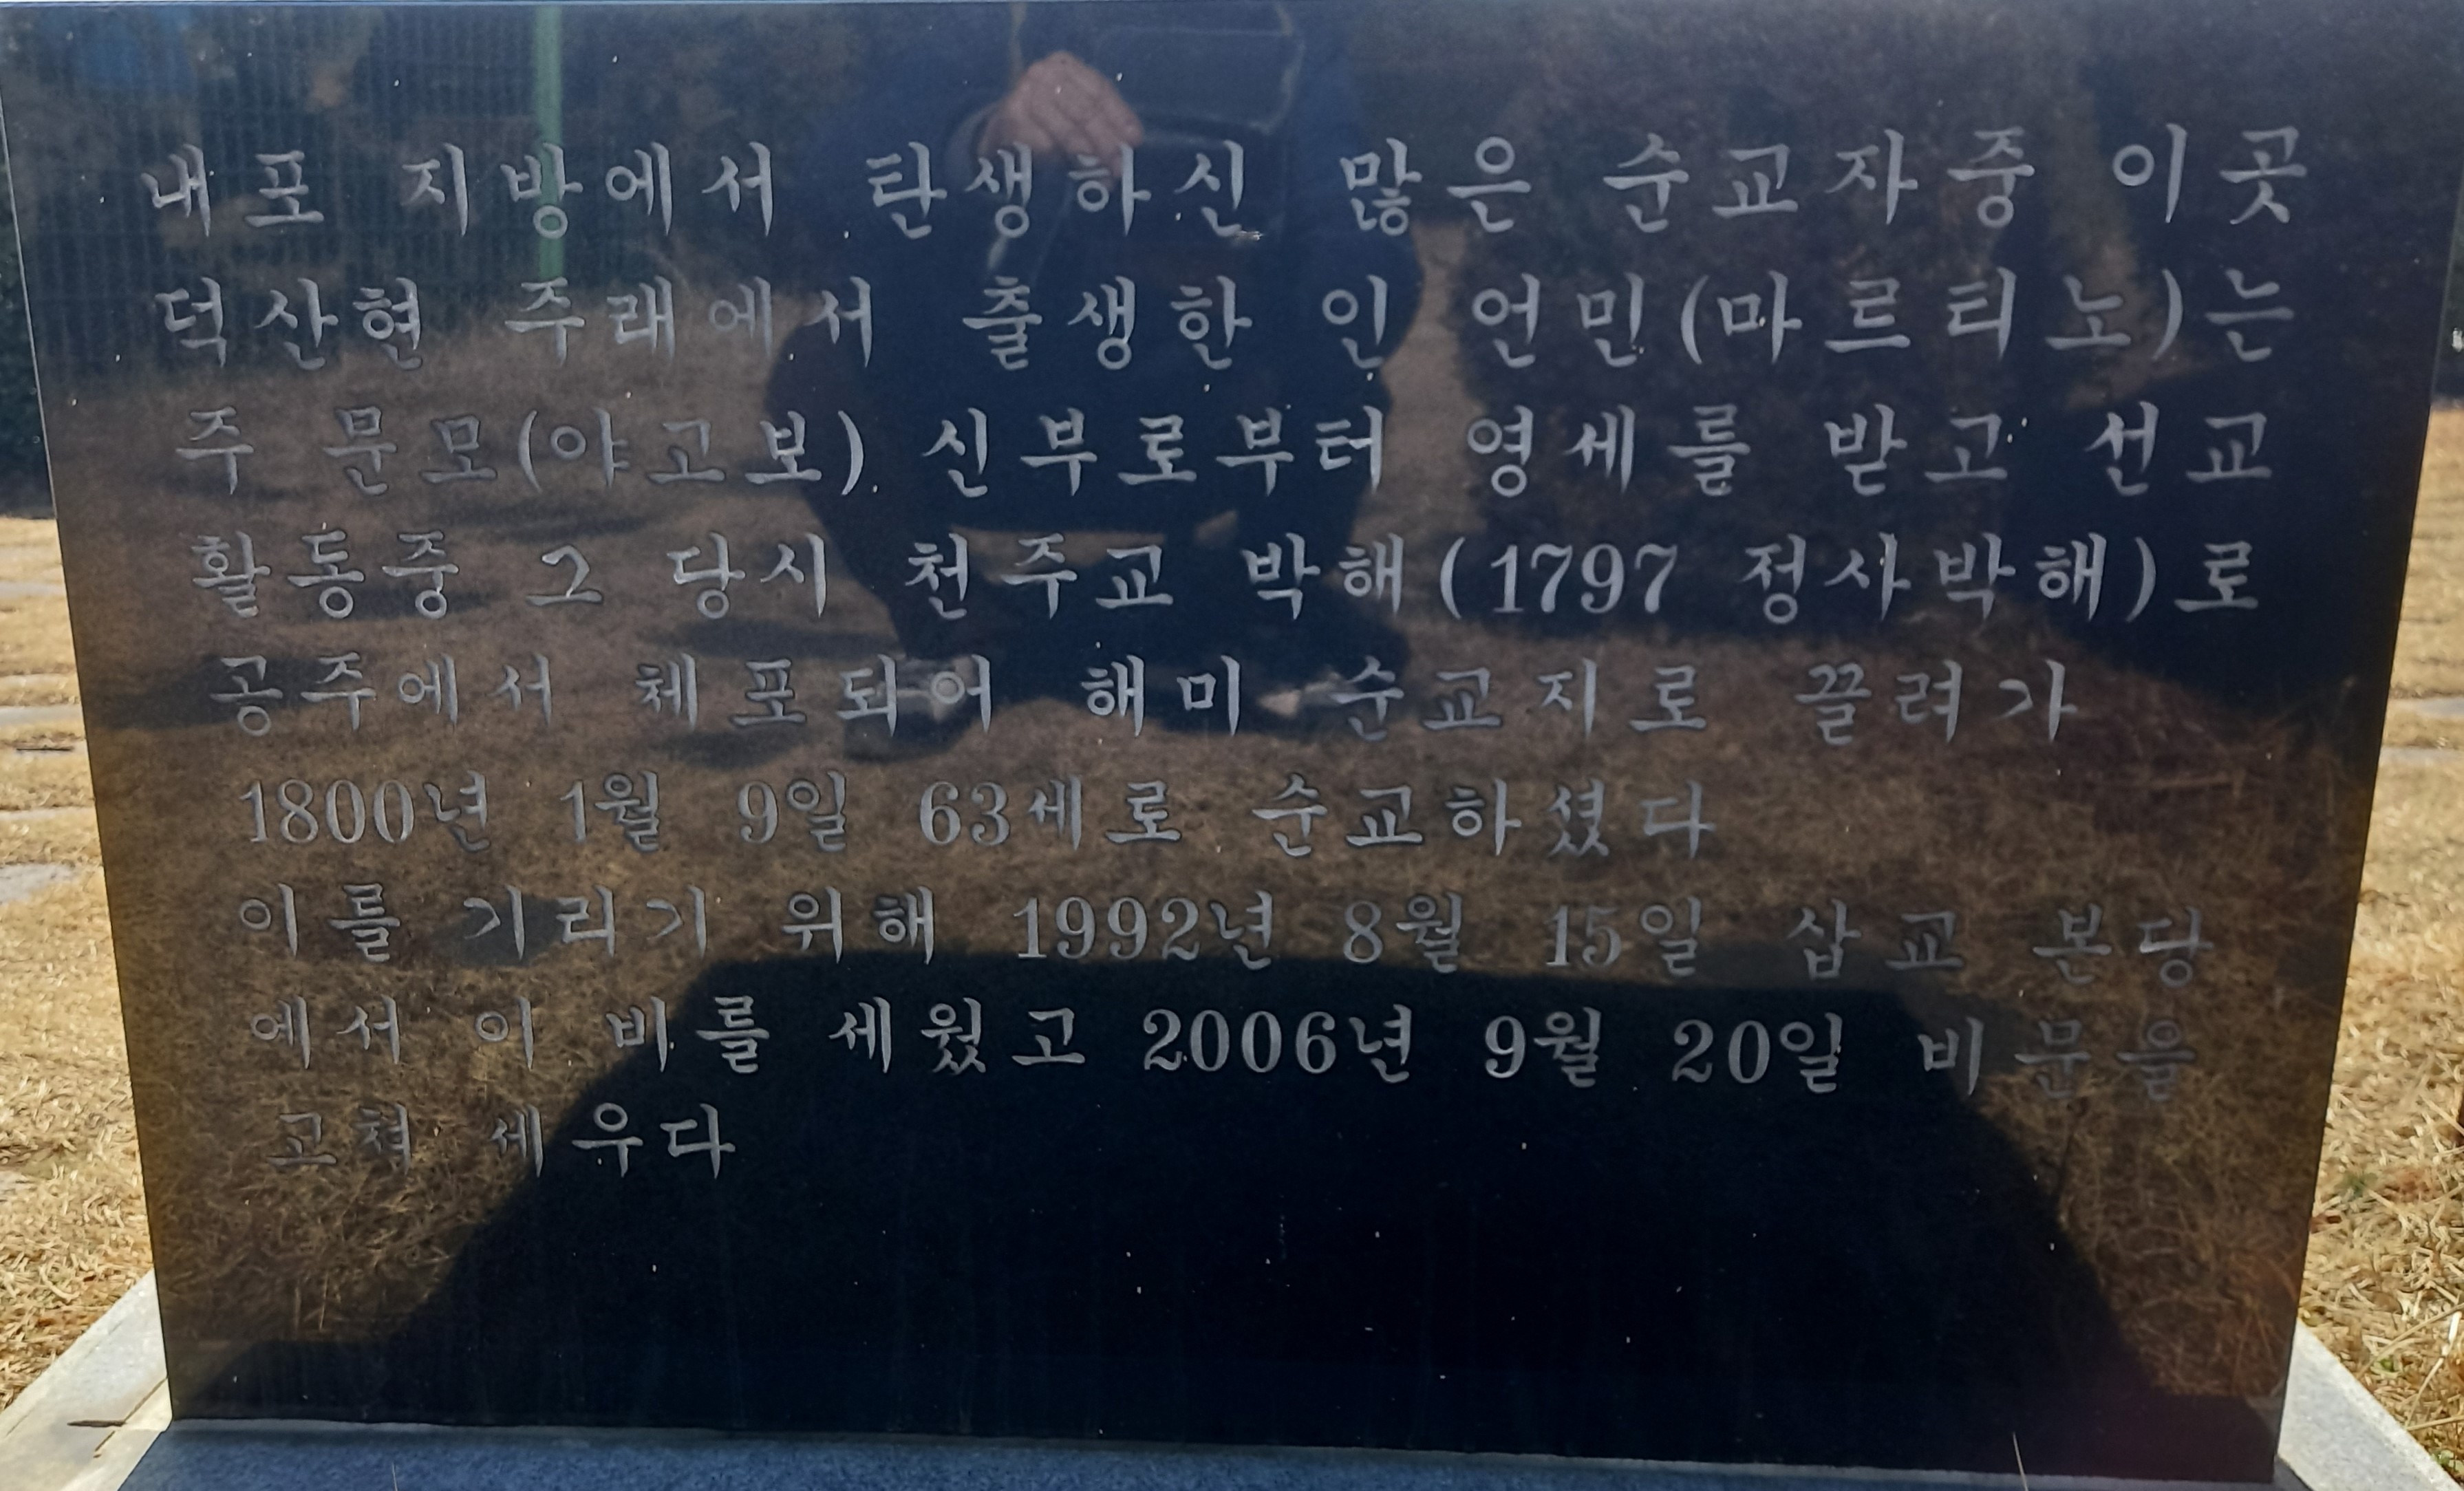 내포 지방에서 탄생하신 많은 순교자중 이곳
덕산현 주래에서 출생한 인 언민(마르티노)는
주 문모(야고보) 신부로부터 영세를 받고 선교
활동중 그 당시 천주교 박해(1797 정사박해)로
공주에서 체포되어 해미 순교지로 끌려가
1800년 1월 9일 63세로 순교하셨다
이를 기리기 위해 1992년 8월 15일 삽교 본당
에서 이 비를 세웠고 2006년 9월 20일 비문을
고쳐 세우다